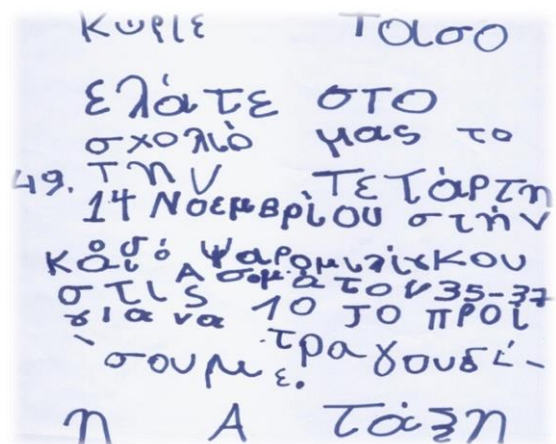 Κωριε Τασο
ελάτε στο
σχολιό μας το
49. την Τετάρτη
14 Νοεμβρίου στήν
οδό Ψαρομιλίγκου
και Ασομάτον 35-37
στις 10 το προί
για να τραγουδί-
σουμε.
η Α τάξη